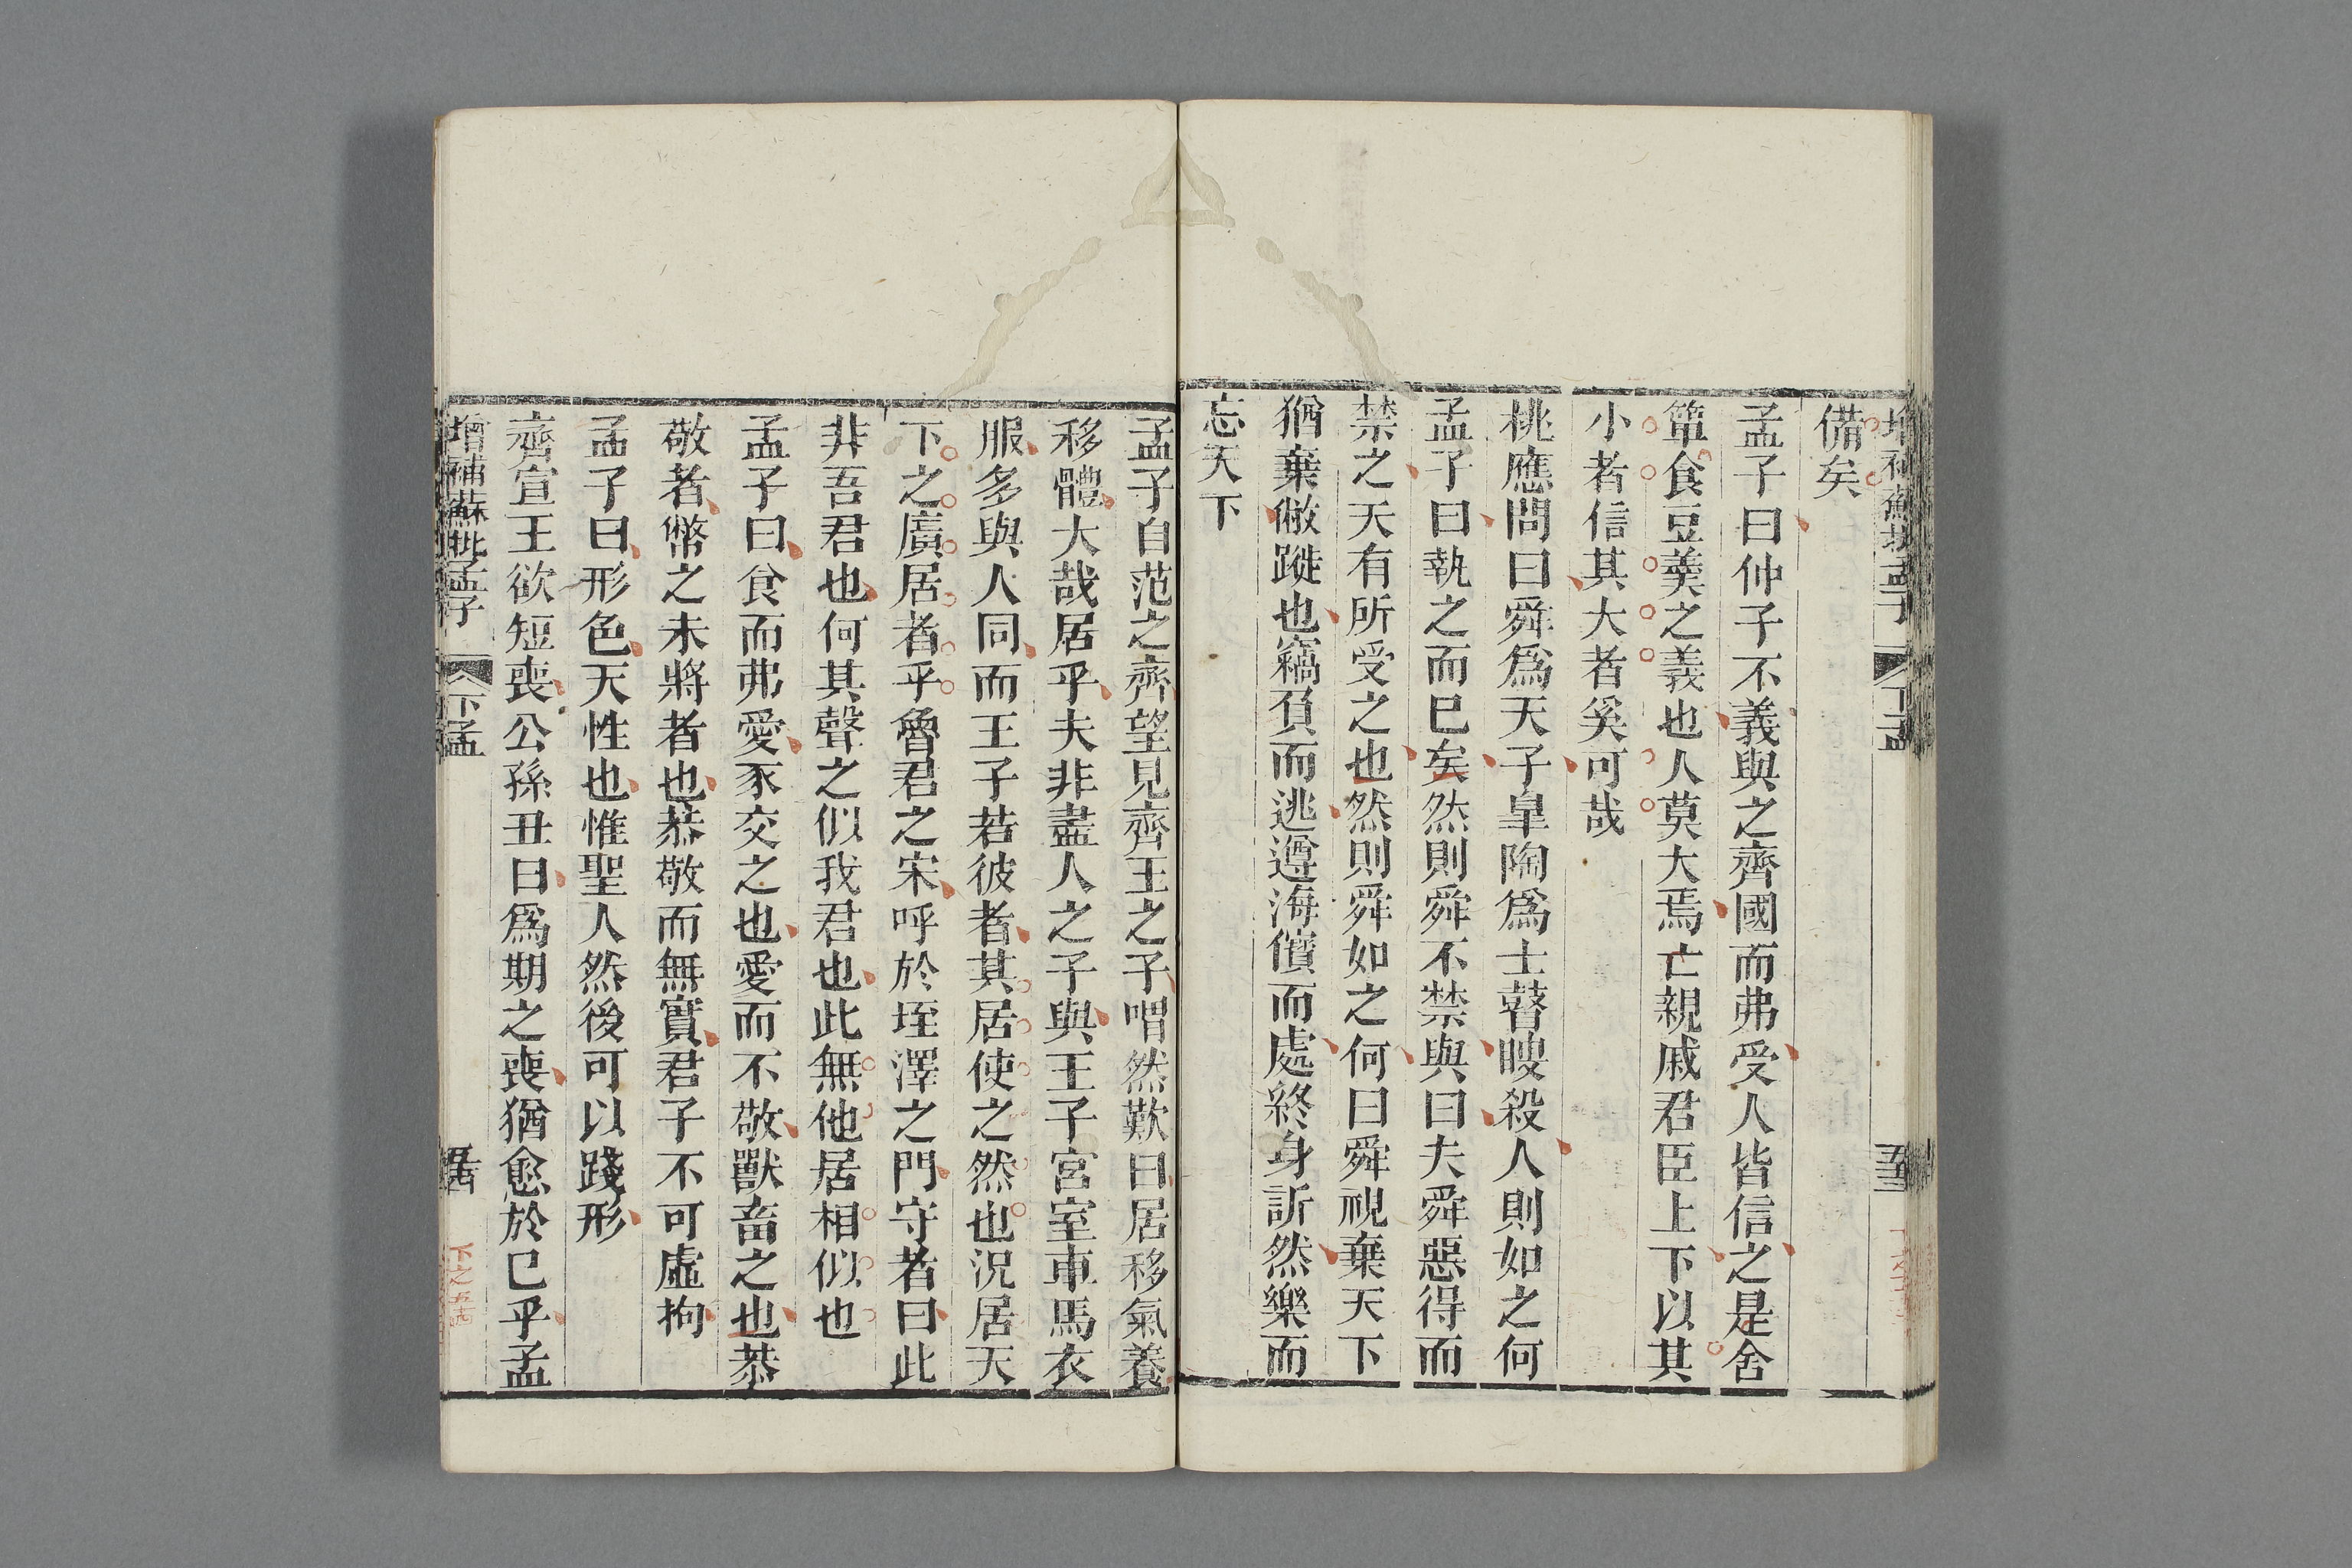 增補蘇批孟子 下孟 至三
備矣
孟子曰仲子不義與之齊國而弗受人皆信之是舍
簞食豆羹之義也人莫大焉亡親戚君臣上下以其
小者信其大者奚可哉
桃應問曰舜爲天子皐陶爲士瞽瞍殺人則如之何
孟子曰執之而已矣然則舜不禁與曰夫舜惡得而
禁之夫有所受之也然則舜如之何曰舜視棄天下
猶棄敝蹝也竊負而逃遵海濱而處終身訢然樂而
忘天下
孟子自范之齊望見齊王之子喟然歎曰居移氣養
移體大哉居乎夫非盡人之子與王子宮室車馬衣
服多與人同而王子若彼者其居使之然也況居天
下之廣居者乎魯君之宋呼於垤澤之門守者曰此
非吾君也何其聲之似我君也此無他居相似也
孟子曰食而弗愛豕交之也愛而不敬獸畜之也恭
敬者幣之未將者也恭敬而無實君子不可虛拘
孟子曰形色天性也惟聖人然後可以踐形
齊宣王欲短喪公孫丑曰爲期之喪猶愈於已乎孟
增補蘇批孟子 下孟
下之五十四